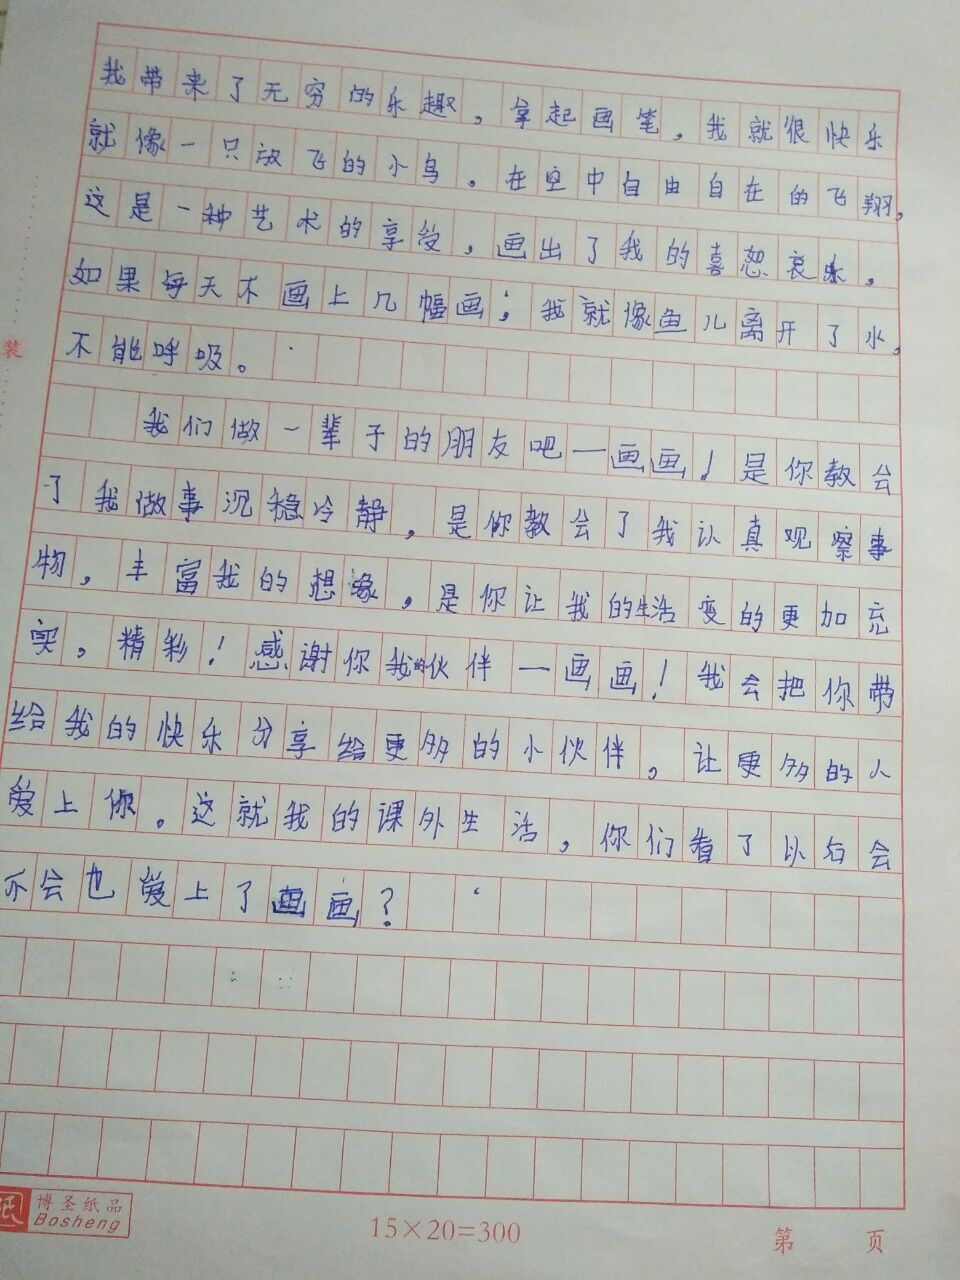 我带来了无穷的乐趣，拿起画笔，我就很快乐
就像一只放飞的小鸟。在空中自由自在的飞翔，
这是一种艺术的享受，画出了我的喜怒哀乐。
如果每天不画上几幅画；我就像鱼儿离开了水，
不能呼吸。
我们做一辈子的朋友吧一画画！是你教会
了我做事沉稳冷静，是你教会了我认真观察事
物，丰富我的想象，是你让我的生活变的更加充
实，精彩！感谢你我的伙伴一画画！我会把你带
给我的快乐分享给更多的小伙伴。让更多的人
爱上你。这就我的课外生活，你们看了以后会
不会也爱上了画画？
装
纸
博圣纸品
Bosheng
15×20=300
第 页